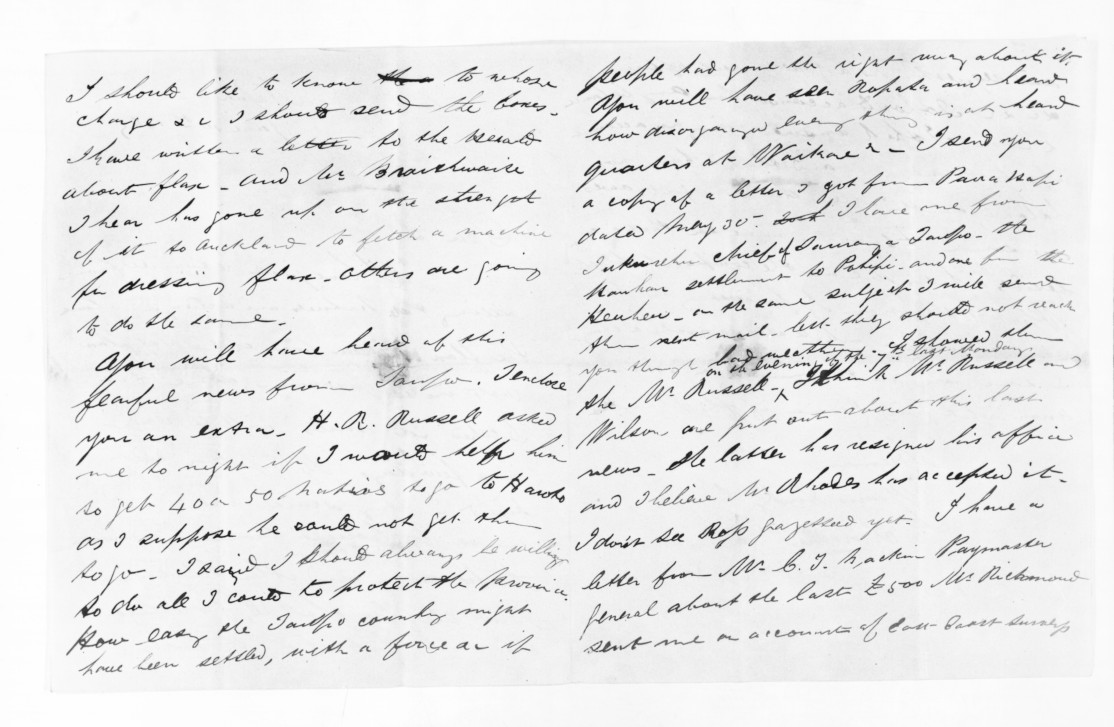 I should like to know to whose
charge &c I should send the boxes.
I have written a letter to the Herald
about flax - and Mr Braithwaite
I hear has gone up on the strengt
of it to Auckland to fetch a machine
for dressing flax - others are going
to do the same.
You will have heard of this
fearful news from Taupo. I enclose
you an extra - H. R. Russell asked
me to night if I would help him
to get 40 or 50 Natives to go to
as I suppose he could not get them
to go - I said I should always be willing
to do all I could to protect the Province.
How easy the Taupo country might
have been settled, with a force or if
people had gone the right way about it.
You will have seen Ropata and heard
how disorganized everything is at head
quarters at - I send you
a copy of a letter I got from
dated May 30 - I have one from
chief of Tauranga Taupo - the
Hauhau settlement to Pohipi - and one from the
Heuheu - on the same subject I will send
them next mail - lest they should not reach
you through bad weather. I showed them
the Mr Russell - on the evening of the 7th last Monday I think Mr Russell and
Wilson are put out about this last
news - the latter has resigned his office
and I believe Mr Rhodes has accepted it -
I don't see Ross gazetted yet. I have a
letter from Mr C. T. Paymaster
general about the last £500 Mr Richmond
sent me on account of East Coast surveys